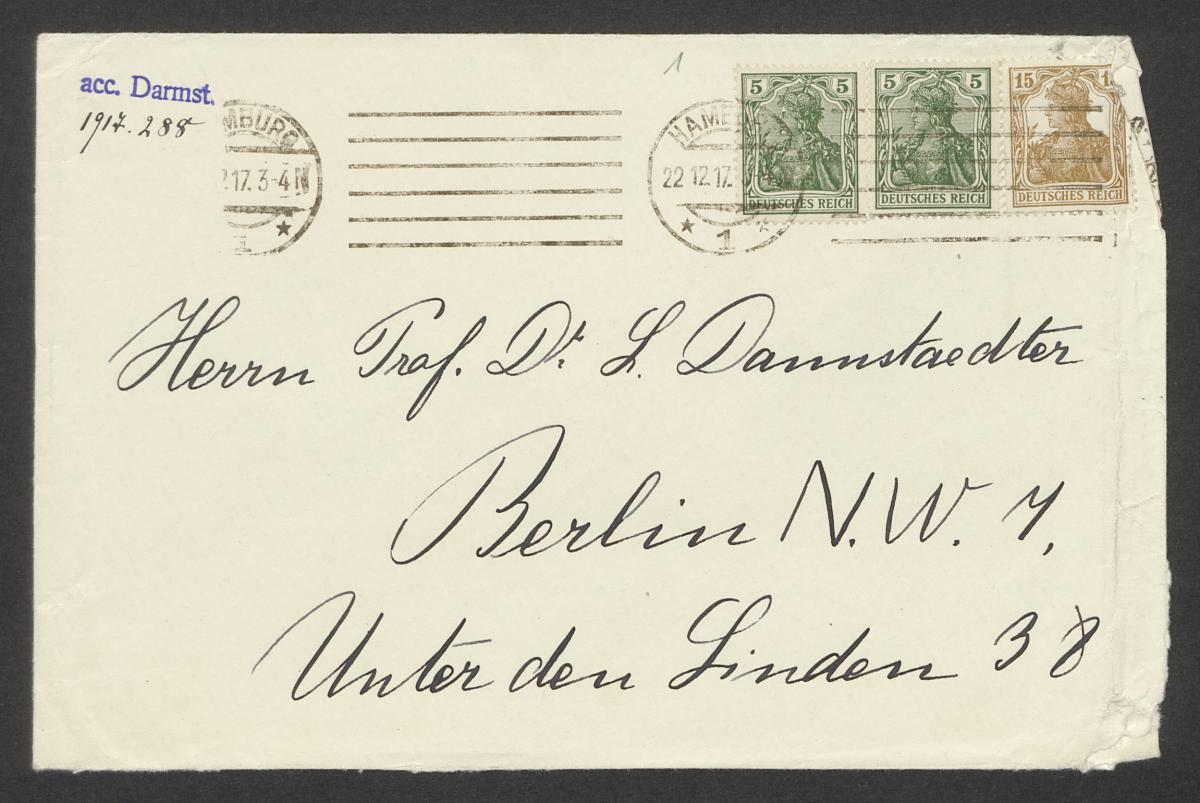 acc. Darmst.
1917. 288
MBURG
.17. 3-4 N
1
1
HAMB
22 12.17.
1
5 5
DEUTSCHES REICH
5 5
DEUTSCHES REICH
15
DEUTSCHES REICH
Herrn Prof. Dr. L. Darmstaedter
Berlin N.W. 7,
Unter den Linden 38